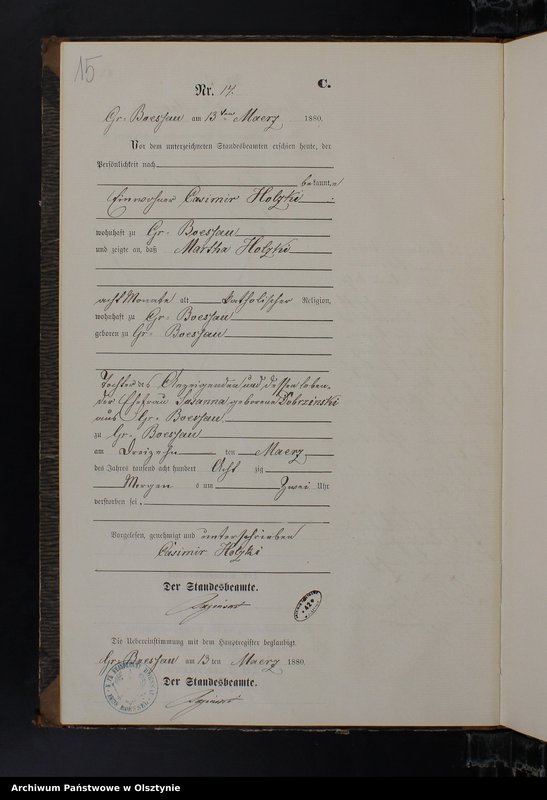 15
Nr. 17.
C.
Gr. Boessau am 13ten Maerz 1880.
Vor dem unterzeichneten Standesbeamten erschien heute, der
Persönlichkeit nach
bekannt,
Einwohner Casimir Holzki
wohnhaft zu Gr. Boessau
und zeigte an, daß Martha Holzki
acht Monate alt katholischer Religion,
wohnhaft zu Gr. Boessau
geboren zu Gr. Boessau
Tochter des Anzeigenden und dessen leben-
der Ehefrau Susanna geborene Dobrzinski
aus Gr. Boessau
zu Gr. Boessau
am Dreizehn ten Maerz
des Jahres tausend acht hundert Acht zig
Morgen s um Zwei Uhr
verstorben sei.
Vorgelesen, genehmigt und unterschrieben
Casimir Holzki
Der Standesbeamte.
Die Uebereinstimmung mit dem Hauptregister beglaubigt.
Gr. Boessau am 13 ten Maerz 1880.
Der Standesbeamte.
Archiwum Państwowe w Olsztynie